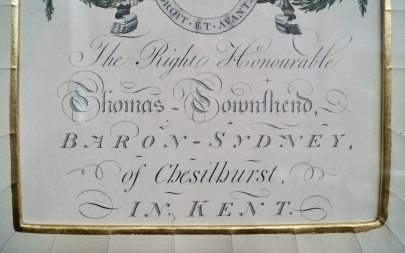 DROIT·ET·AVANT·
The Right Honourable
Thomas Townshend,
BARON SYDNEY,
of Chesilhurst,
IN KENT.